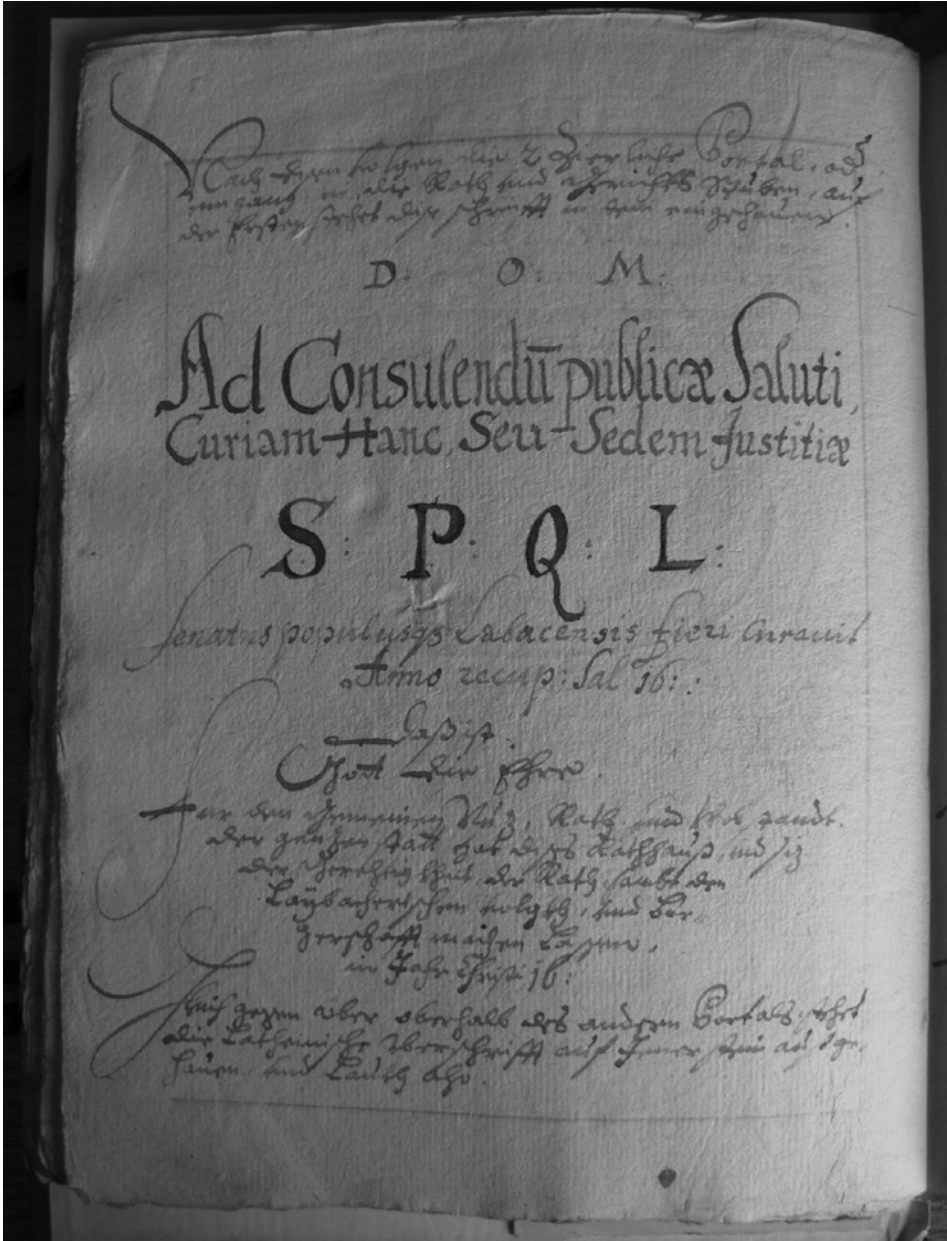 Nach dem folgen die 2 Zierliche Portal, od
eingang, in die Rath und Gerichts Stuben, auf
der Ersten stehet dise schrifft in stein eingehauen.
D: O: M:
Ad Consulendū publicæ Saluti,
Curiam Hanc, Seu Sedem Justitiæ
S: P: Q: L:
Senatus populusq3 Labacensis fieri Curauit
Anno recup: Sal 16: :
Daß ist.
Gott die Ehre.
Für den Gemeinen Nuz, Rath und
der ganzen statt hat dises Rathhauß, und siz
der Gerechtigkheit, der Rath, sambt den
Laÿbacherischen volgkh, und Bur-
gerschafft machen Lassen,
im Jahr Christi 16:
Gleich gegen über oberhalb des andern Portals, stehet
die Latheinische Überschrifft auf Jener stein ausge-
hauen, und Lauth also.